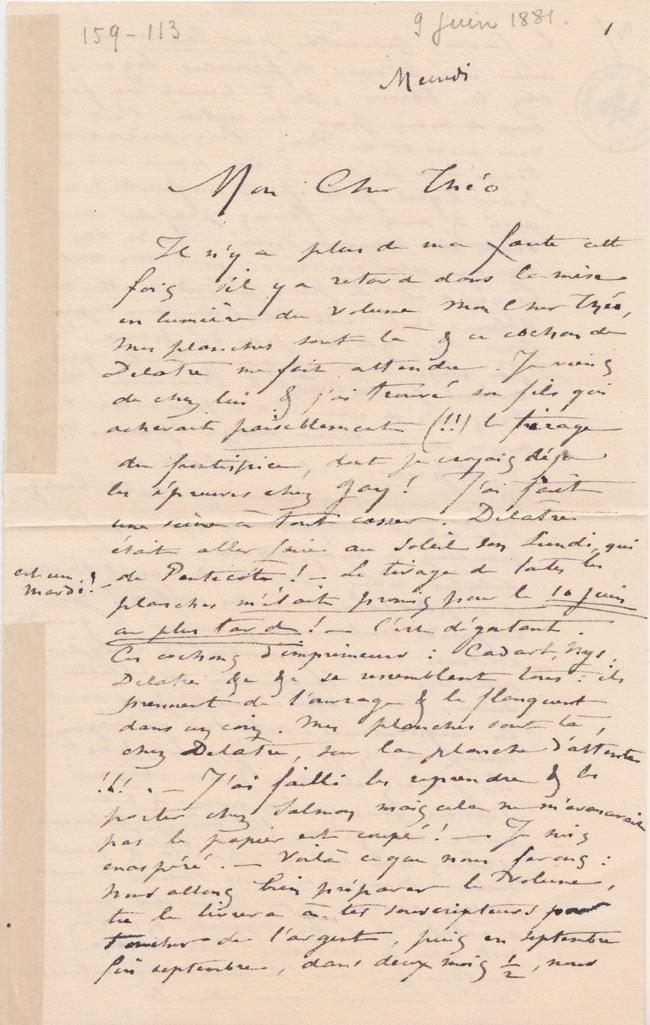 159-113
9 juin 1881.
1
Mardi
Mon Cher Théo
Il n'y a plus de ma faute cette
fois s'il y a retard dans la mise
en lumière du volume mon cher Théo,
mes planches sont là & ce cochon de
Delatre me fait attendre. Je viens
de chez lui & j'ai trouvé son fils qui
achevait paisiblement (!!) le tirage
du frontispice, dont je croyais déjà
les épreuves chez Gay! J'ai fait
une scène à tout casser. Delâtre
était aller faire au Soleil son Lundi, qui
est un mardi!
de Pentecôte! — Le tirage de toutes les
planches m'était promis pour le 10 juin
au plus tard! — C'est dégoutant.
Ces cochons d'imprimeurs: Cadart, Nys,
Delatre &c &c se ressemblent tous: ils
prennent de l'ouvrage & le flanquent
dans un coin. Mes planches sont là,
chez Delatre, sur la planche d'attente
!!! — J'ai failli les reprendre & les
porter chez Salmon mais cela ne m'avancerait
pas le papier est coupé! — Je suis
exaspéré. — Voilà ce que nous ferons:
nous allons bien préparer le Volume,
tu le livrera à tes souscripteurs pour
toucher de l'argent, puis en septembre
fin septembre, dans deux mois ½, nous